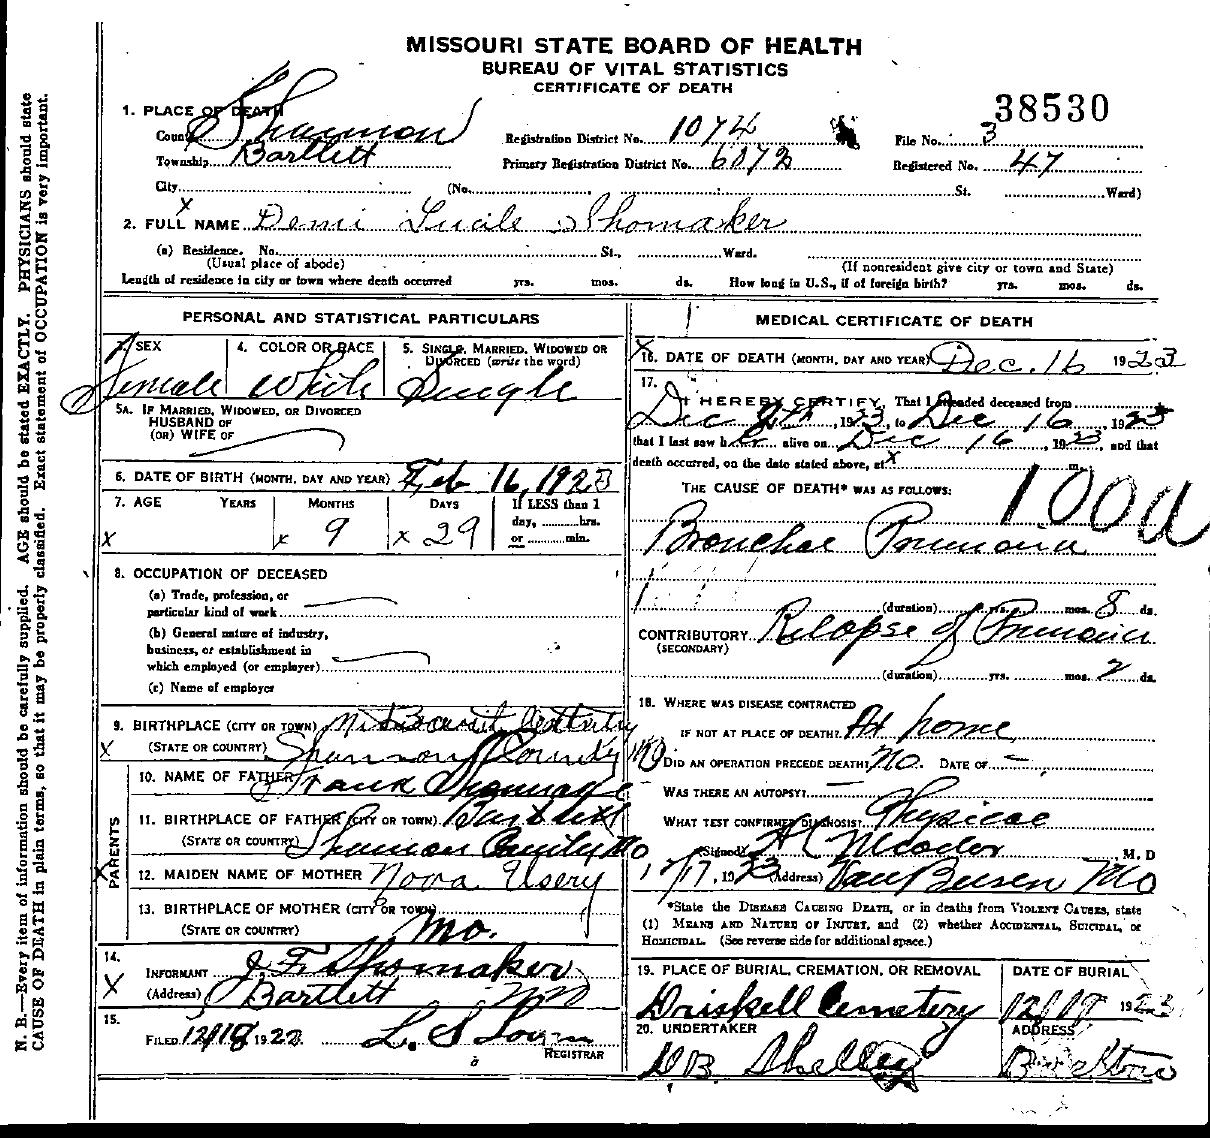 MISSOURI STATE BOARD OF HEALTH
BUREAU OF VITAL STATISTICS
CERTIFICATE OF DEATH
38530
1. PLACE OF DEATH
County Shannon Registration District No. 1074 File No. 3
Township Bartlett Primary Registration District No. 6072 Registered No. 47
City (No. St. Ward)
2. FULL NAME Demi Lucile Shomaker
(a) Residence. No. St., Ward.
(Usual place of abode) (If nonresident give city or town and State)
Length of residence in city or town where death occurred yrs. mos. ds. How long in U.S., if of foreign birth? yrs. mos. ds.
PERSONAL AND STATISTICAL PARTICULARS
3. SEX Female
4. COLOR OR RACE White
5. SINGLE, MARRIED, WIDOWED OR DIVORCED (write the word) Single
5A. IF MARRIED, WIDOWED, OR DIVORCED
HUSBAND OF
(OR) WIFE OF
6. DATE OF BIRTH (MONTH, DAY AND YEAR) Feb 16, 1923
7. AGE YEARS MONTHS DAYS If LESS than 1
day, hrs.
or min.
x x 9 x 29
8. OCCUPATION OF DECEASED
(a) Trade, profession, or
particular kind of work
(b) General nature of industry,
business, or establishment in
which employed (or employer)
(c) Name of employer
9. BIRTHPLACE (CITY OR TOWN)
(STATE OR COUNTRY) Shannon County Mo
PARENTS
10. NAME OF FATHER Frank
11. BIRTHPLACE OF FATHER (CITY OR TOWN) Bartlett
(STATE OR COUNTRY) Shannon County Mo
12. MAIDEN NAME OF MOTHER Nova Usery
13. BIRTHPLACE OF MOTHER (CITY OR TOWN)
(STATE OR COUNTRY) Mo.
14.
INFORMANT J. F. Shomaker
(Address) Bartlett Mo
15.
FILED 12/18 1923 L. S.
REGISTRAR
MEDICAL CERTIFICATE OF DEATH
16. DATE OF DEATH (MONTH, DAY AND YEAR) Dec. 16 1923
17.
I HEREBY CERTIFY, That I attended deceased from
Dec 9th, 1923, to Dec 16, 1923
that I last saw her alive on Dec 16, 1923, and that
death occurred, on the date stated above, at m.
THE CAUSE OF DEATH* WAS AS FOLLOWS:
100a
Bronchal Pnumonia
(duration) yrs. mos. 8 ds.
CONTRIBUTORY Relapse of Pnumonia
(SECONDARY)
(duration) yrs. mos. 2 ds.
18. WHERE WAS DISEASE CONTRACTED
IF NOT AT PLACE OF DEATH? At home
DID AN OPERATION PRECEDE DEATH? No. DATE OF
WAS THERE AN AUTOPSY?
WHAT TEST CONFIRMED DIAGNOSIS? Physical
(Signed) M. D
12/17, 1923 (Address) Van Buren Mo
*State the DISEASE CAUSING DEATH, or in deaths from VIOLENT CAUSES, state
(1) MEANS AND NATURE OF INJURY, and (2) whether ACCIDENTAL, SUICIDAL, or
HOMICIDAL. (See reverse side for additional space.)
19. PLACE OF BURIAL, CREMATION, OR REMOVAL DATE OF BURIAL
Driskell Cemetery 12/18 1923
20. UNDERTAKER ADDRESS
D B Shelley
N. B.—Every item of information should be carefully supplied. AGE should be stated EXACTLY. PHYSICIANS should state
CAUSE OF DEATH in plain terms, so that it may be properly classified. Exact statement of OCCUPATION is very important.